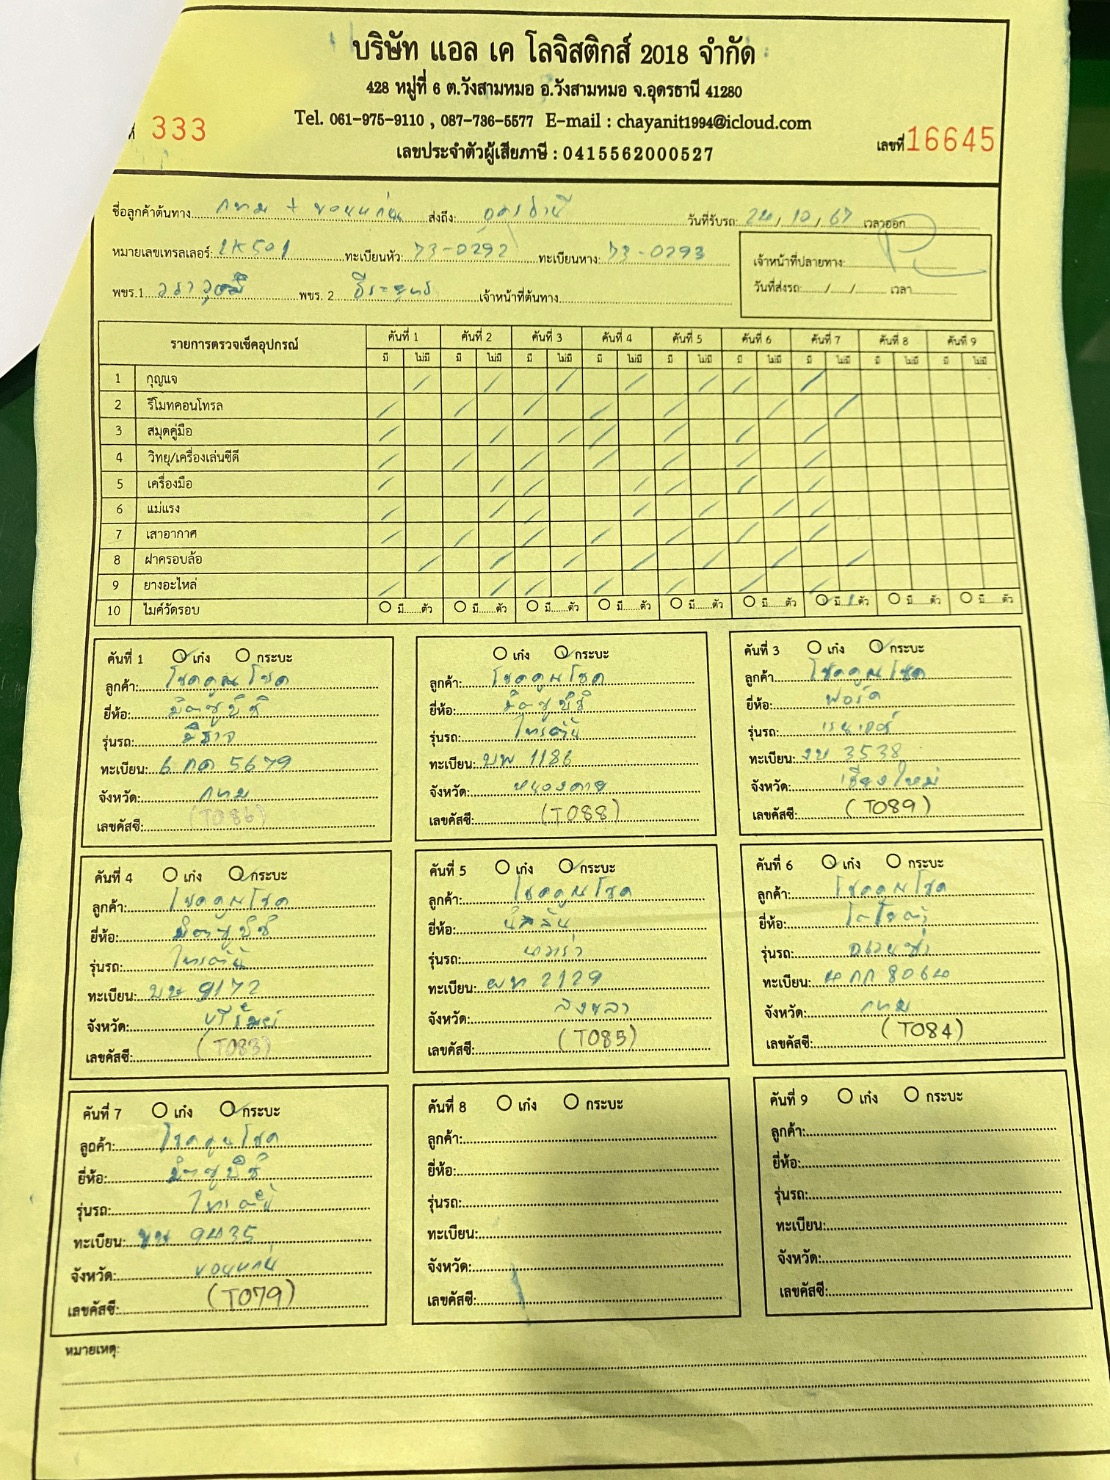 บริษัท แอล เค โลจิสติกส์ 2018 จำกัด
428 หมู่ที่ 6 ต.วังสามหมอ อ.วังสามหมอ จ.อุดรธานี 41280
Tel. 061-975-9110 , 087-736-5577 E-mail : chayanit1994@icloud.com
เลขประจำตัวผู้เสียภาษี : 0415562000527
333
เลขที่ 16645
ชื่อลูกค้าต้นทาง กทม + ขอนแก่น ส่งถึง: อุดรธานี วันที่รับรถ: 24/10/67 เวลาออก
หมายเลขเทรลเลอร์: LK501 ทะเบียนหัว: 73-0292 ทะเบียนหาง: 73-0293
เจ้าหน้าที่ปลายทาง:
วันที่ส่งรถ: / / เวลา
พขร.1 วราวุฒิ พขร. 2 ธีระยุทธ เจ้าหน้าที่ต้นทาง
รายการตรวจเช็คอุปกรณ์ คันที่ 1 คันที่ 2 คันที่ 3 คันที่ 4 คันที่ 5 คันที่ 6 คันที่ 7 คันที่ 8 คันที่ 9
มี ไม่มี มี ไม่มี มี ไม่มี มี ไม่มี มี ไม่มี มี ไม่มี มี ไม่มี มี ไม่มี มี ไม่มี
1 กุญแจ
2 รีโมทคอนโทรล
3 สมุดคู่มือ
4 วิทยุ/เครื่องเล่นซีดี
5 เครื่องมือ
6 แม่แรง
7 เสาอากาศ
8 ฝาครอบล้อ
9 ยางอะไหล่
10 ไมค์วัดรอบ มี ตัว มี ตัว มี ตัว มี ตัว มี ตัว มี ตัว มี 1 ตัว มี ตัว มี ตัว
คันที่ 1 เก๋ง กระบะ
ลูกค้า: โชคคูณโชค
ยี่ห้อ: มิตซูบิชิ
รุ่นรถ: มิราจ
ทะเบียน: 6 กด 5679
จังหวัด: กทม
เลขคัสซี: (T086)
เก๋ง กระบะ
ลูกค้า: โชคคูณโชค
ยี่ห้อ: มิตซูบิชิ
รุ่นรถ: ไทรตัน
ทะเบียน: บพ 1186
จังหวัด: หนองคาย
เลขคัสซี: (T088)
คันที่ 3 เก๋ง กระบะ
ลูกค้า โชคคูณโชค
ยี่ห้อ: ฟอร์ด
รุ่นรถ: เรนเจอร์
ทะเบียน: งบ 3538
จังหวัด: เชียงใหม่
เลขคัสซี: (T089)
คันที่ 4 เก๋ง กระบะ
ลูกค้า: โชคคูณโชค
ยี่ห้อ: มิตซูบิชิ
รุ่นรถ: ไทรตัน
ทะเบียน: บษ 9172
จังหวัด: บุรีรัมย์
เลขคัสซี: (T083)
คันที่ 5 เก๋ง กระบะ
ลูกค้า: โชคคูณโชค
ยี่ห้อ: นิสสัน
รุ่นรถ: นาวาร่า
ทะเบียน: ผท 2129
จังหวัด: สงขลา
เลขคัสซี: (T085)
คันที่ 6 เก๋ง กระบะ
ลูกค้า: โชคคูณโชค
ยี่ห้อ: โตโยต้า
รุ่นรถ: อแวนซ่า
ทะเบียน: 4 กก 8064
จังหวัด: กทม
เลขคัสซี: (T084)
คันที่ 7 เก๋ง กระบะ
ลูกค้า: โชคคูณโชค
ยี่ห้อ: มิตซูบิชิ
รุ่นรถ: ไทรตัน
ทะเบียน: 9435
จังหวัด: ขอนแก่น
เลขคัสซี: (T079)
คันที่ 8 เก๋ง กระบะ
ลูกค้า:
ยี่ห้อ:
รุ่นรถ:
ทะเบียน:
จังหวัด:
เลขคัสซี:
คันที่ 9 เก๋ง กระบะ
ลูกค้า:
ยี่ห้อ:
รุ่นรถ:
ทะเบียน:
จังหวัด:
เลขคัสซี:
หมายเหตุ: